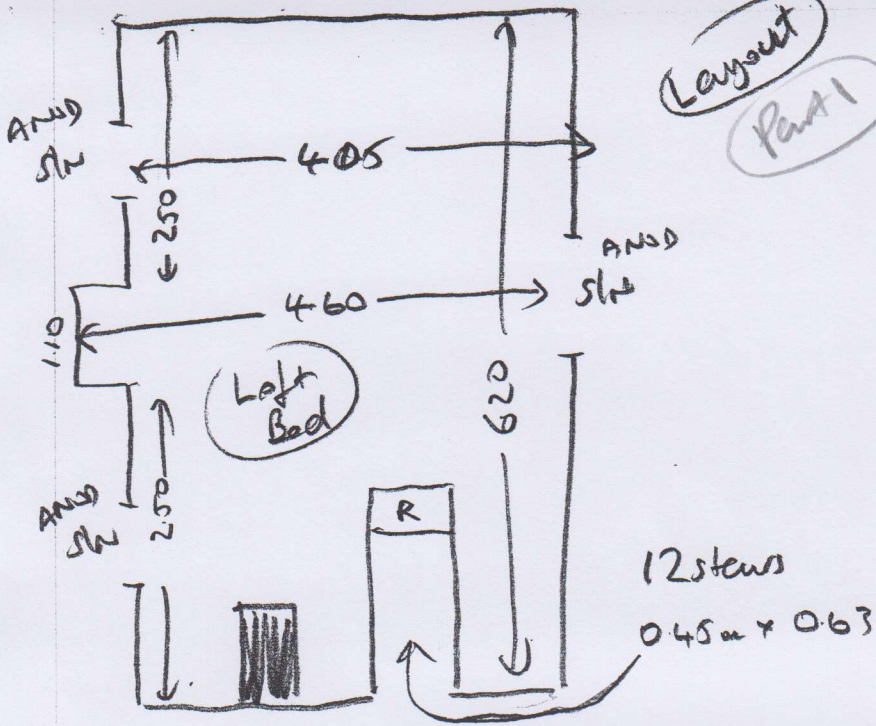 Layout
Part 1
ANOD
S/N
405
250
ANOD
S/N
460
1.10
Loft
Bed
620
ANOD
S/N
250
R
12 stairs
0.45m x 0.63